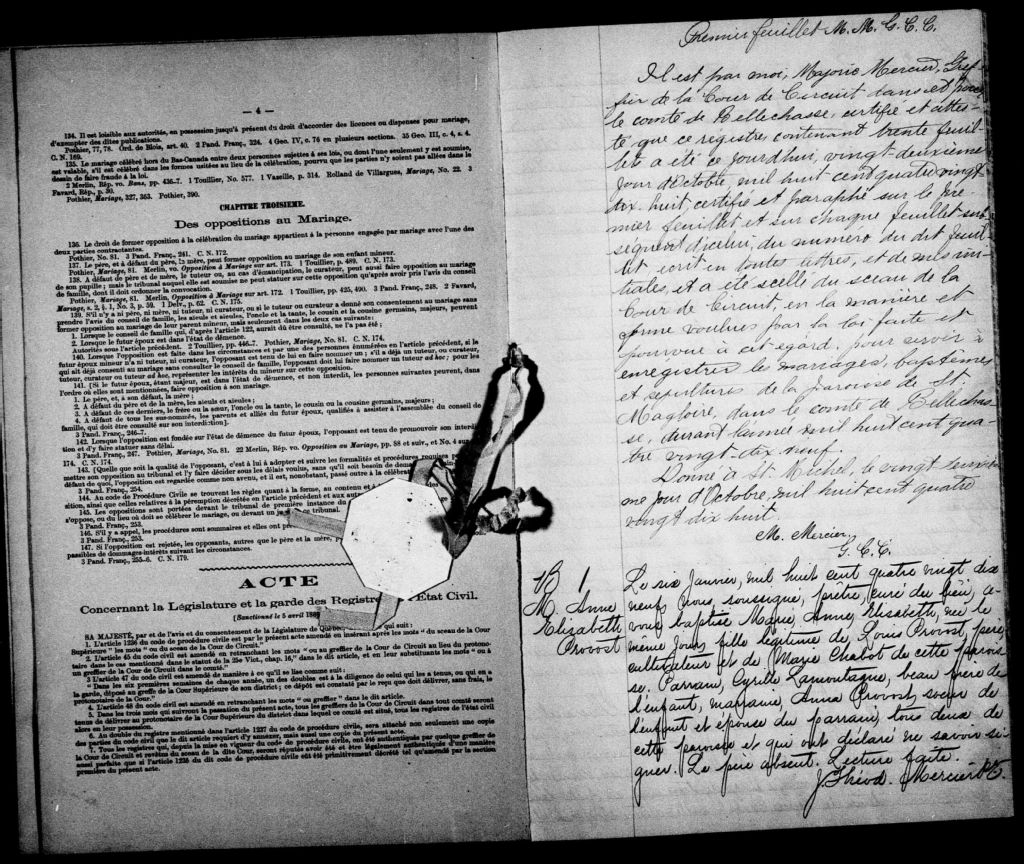 — 4 —
134. Il est loisible aux autorités, en possession jusqu'à présent du droit d'accorder des licences ou dispenses pour mariage,
d'exempter des dites publications.
Pothier, 77, 78. Ord. de Blois, art. 40. 2 Pand. Franç., 324. 4 Geo. IV, c. 76 en plusieurs sections. 35 Geo. III, c. 4, s. 4.
C. N. 169.
135. Le mariage célébré hors du Bas-Canada entre deux personnes sujettes à ses lois, ou dont l'une seulement y est soumise,
est valable, s'il est célébré dans les formes usitées au lieu de la célébration, pourvu que les parties n'y soient pas allées dans le
dessein de faire fraude à la loi.
2 Merlin, Rép. vo. Bans, pp. 436-7. 1 Touillier, No. 577. 1 Vaseille, p. 314. Rolland de Villargues, Mariage, No. 22. 3
Favard, Rép., p. 30.
Pothier, Mariage, 327, 363. Pothier, 390.
CHAPITRE TROISIEME.
Des oppositions au Mariage.
136. Le droit de former opposition à la célébration du mariage appartient à la personne engagée par mariage avec l'une des
deux parties contractantes.
Pothier, No. 81. 3 Pand. Franç., 241. C. N. 172.
137. Le père, et à défaut du père, la mère, peut former opposition au mariage de son enfant mineur.
Pothier, Mariage, 81. Merlin, vo. Opposition à Mariage sur art. 173. 1 Touillier, p. 489. C. N. 173.
138. A défaut de père et de mère, le tuteur ou, au cas d'émancipation, le curateur, peut aussi faire opposition au mariage
de son pupille; mais le tribunal auquel elle est soumise ne peut statuer sur cette opposition qu'après avoir pris l'avis du conseil
de famille, dont il doit ordonner la convocation.
Pothier, Mariage, 81. Merlin, Opposition à Mariage sur art. 172. 1 Touillier, pp. 425, 490. 3 Pand. Franç., 248. 2 Favard,
Mariage, s. 2, § 1, No. 3, p. 59. 1 Delv., p. 62. C. N. 175.
139. S'il n'y a ni père, ni mère, ni tuteur, ni curateur, ou si le tuteur ou curateur a donné son consentement au mariage sans
prendre l'avis du conseil de famille, les aïeuls et aïeules, l'oncle et la tante, le cousin et la cousine germains, majeurs, peuvent
former opposition au mariage de leur parent mineur, mais seulement dans les deux cas suivants:
1. Lorsque le conseil de famille qui, d'après l'article 122, aurait dû être consulté, ne l'a pas été;
2. Lorsque le futur époux est dans l'état de démence.
Autorités sous l'article précédent. 2 Touillier, pp. 446-7. Pothier, Mariage, No. 81. C. N. 174.
140. Lorsque l'opposition est faite dans les circonstances et par une des personnes énumérées en l'article précédent, si le
futur époux mineur n'a ni tuteur, ni curateur, l'opposant est tenu de lui en faire nommer un; s'il a déjà un tuteur, ou curateur,
qui ait déjà consenti au mariage sans consulter le conseil de famille, l'opposant doit lui faire nommer un tuteur ad hoc; pour les
tuteur, curateur ou tuteur ad hoc, représenter les intérêts du mineur sur cette opposition.
141. [Si le futur époux, étant majeur, est dans l'état de démence, et non interdit, les personnes suivantes peuvent, dans
l'ordre où elles sont mentionnées, faire opposition à son mariage.
1. Le père, et à son défaut, la mère;
2. A défaut du père et de la mère, les aïeuls et aïeules;
3. A défaut de ces derniers, le frère ou la sœur, l'oncle ou la tante, le cousin ou la cousine germains, majeurs;
4. A défaut de tous les sus-nommés, les parents et alliés du futur époux, qualifiés à assister à l'assemblée du conseil de
famille, qui doit être consulté sur son interdiction].
3 Pand. Franç., 246-7.
142. Lorsque l'opposition est fondée sur l'état de démence du futur époux, l'opposant est tenu de promouvoir son interdic-
tion et d'y faire statuer sans délai.
3 Pand. Franç., 247. Pothier, Mariage, No. 81. 22 Merlin, Rép. vo. Opposition au Mariage, pp. 88 et suiv., et No. 4 sur
174. C. N. 174.
143. [Quelle que soit la qualité de l'opposant, c'est à lui à adopter et suivre les formalités et procédures requises p
mettre son opposition au tribunal et l'y faire décider sous les délais voulus, sans qu'il soit besoin de deman
défaut de quoi, l'opposition est regardée comme non avenue, et il est, nonobstant, passé outre à la célébr
3 Pand. Franç., 254.
144. Au code de Procédure Civile se trouvent les règles quant à la forme, au contenu et à
sition, ainsi que celles relatives à la péremption décrétée en l'article précédent et aux autr
145. Les oppositions sont portées devant le tribunal de première instance du
s'oppose, ou du lieu où doit se célébrer le mariage, ou devant un
3 Pand. Franç., 253.
146. S'il y a appel, les procédures sont sommaires et elles ont pr
3 Pand. Franç., 253.
147. Si l'opposition est rejetée, les opposants, autres que le père et la mère,
passibles de dommages-intérêts suivant les circonstances.
3 Pand. Franç., 255-6. C. N. 179.
ACTE
Concernant la Législature et la garde des Registre Etat Civil.
[Sanctionné le 5 avril 18
SA MAJESTÉ, par et de l'avis et du consentement de la Législature de Québec qui suit:
1. L'article 1236 du code de procédure civile est par le présent acte amendé en insérant après les mots "du sceau de la Cour
Supérieure" les mots "ou du sceau de la Cour de Circuit."
2. L'article 45 du code civil est amendé en retranchant les mots "ou au greffier de la Cour de Circuit au lieu du protono-
taire dans le cas mentionné dans le statut de la 25e Vict., chap. 16," dans le dit article, et en leur substituant les mots "ou à
un greffier de la Cour de Circuit dans le comté."
3. L'article 47 du code civil est amendé de manière à ce qu'il se lise comme suit:
"Dans les six premières semaines de chaque année, un des doubles est à la diligence de celui qui les a tenus, ou qui en a
la garde, déposé au greffe de la Cour Supérieure de son district; ce dépôt est constaté par le reçu que doit délivrer, sans frais, le
protonotaire de la Cour."
4. L'article 48 du code civil est amendé en retranchant les mots "ou greffier" dans le dit article.
5. Dans les trois mois qui suivront la passation du présent acte, tous les greffiers de la Cour de Circuit dans tout comté seront
tenus de délivrer au protonotaire de la Cour Supérieure du district dans lequel ce comté est situé, tous les registres de l'état civil
alors en leur possession.
6. Au double du registre mentionné dans l'article 1237 du code de procédure civile, sera attaché non seulement une copie
des parties du code civil que le dit article requiert d'y annexer, mais aussi une copie du présent acte.
7. Tous les registres qui, depuis la mise en vigueur du code de procédure civile, ont été authentiqués par quelque greffier de
la Cour de Circuit et revêtus du sceau de la dite Cour, seront réputés avoir été et être légalement authentiqués d'une manière
aussi parfaite que si l'article 1236 du dit code de procédure civile eût été primitivement décrété tel qu'amendé par la section
première du présent acte.
Premier feuillet M. M. G. C. C.
Il est par moi, Majoric Mercier, Gref-
fier de la Cour de Circuit dans et pour
le comté de Bellechasse, certifié et attes-
té que ce registre, contenant trente feuil-
lets a été ce jourd'hui, vingt-deuxième
jour d'Octobre, mil huit cent quatre vingt
dix-huit certifié et paraphé sur le pre
mier feuillet et sur chaque feuillet sub
séquent d'icelui, du numéro du dit feuil
let écrit en toutes lettres, et de mes ini-
tiales, et a été scellé du sceau de la
Cour de Circuit, en la manière et
forme voulues par la loi faite et
pourvue à cet égard, pour servir à
enregistrer les mariages, baptêmes
et sépultures de la paroisse de St.
Magloire, dans le comté de Bellechas-
se, durant l'année mil huit cent qua-
tre vingt-dix neuf.
Donné à St. Michel, le vingt deuxiè
me jour d'Octobre, mil huit cent quatre
vingt dix huit.
M. Mercier,
G. C. C.
B 1
M. Anne
Elizabeth
Provost
Le six Janvier, mil huit cent quatre vingt dix
neuf, Nous, soussigné, prêtre, curé du lieu, a-
vons baptisé Marie, Anne, Elisabeth, née le
même jour, fille légitime de Louis Provost, père
cultivateur et de Marie Chabot de cette parois
se. Parrain, Cyrille Lamontagne, beau frère de
l'enfant, marraine, Anna Provost, soeur de
l'enfant et épouse du parrain, tous deux de
cette paroisse et qui ont déclaré ne savoir si-
gner. Le père absent. Lecture faite.
J. Théod. Mercier Ptre.